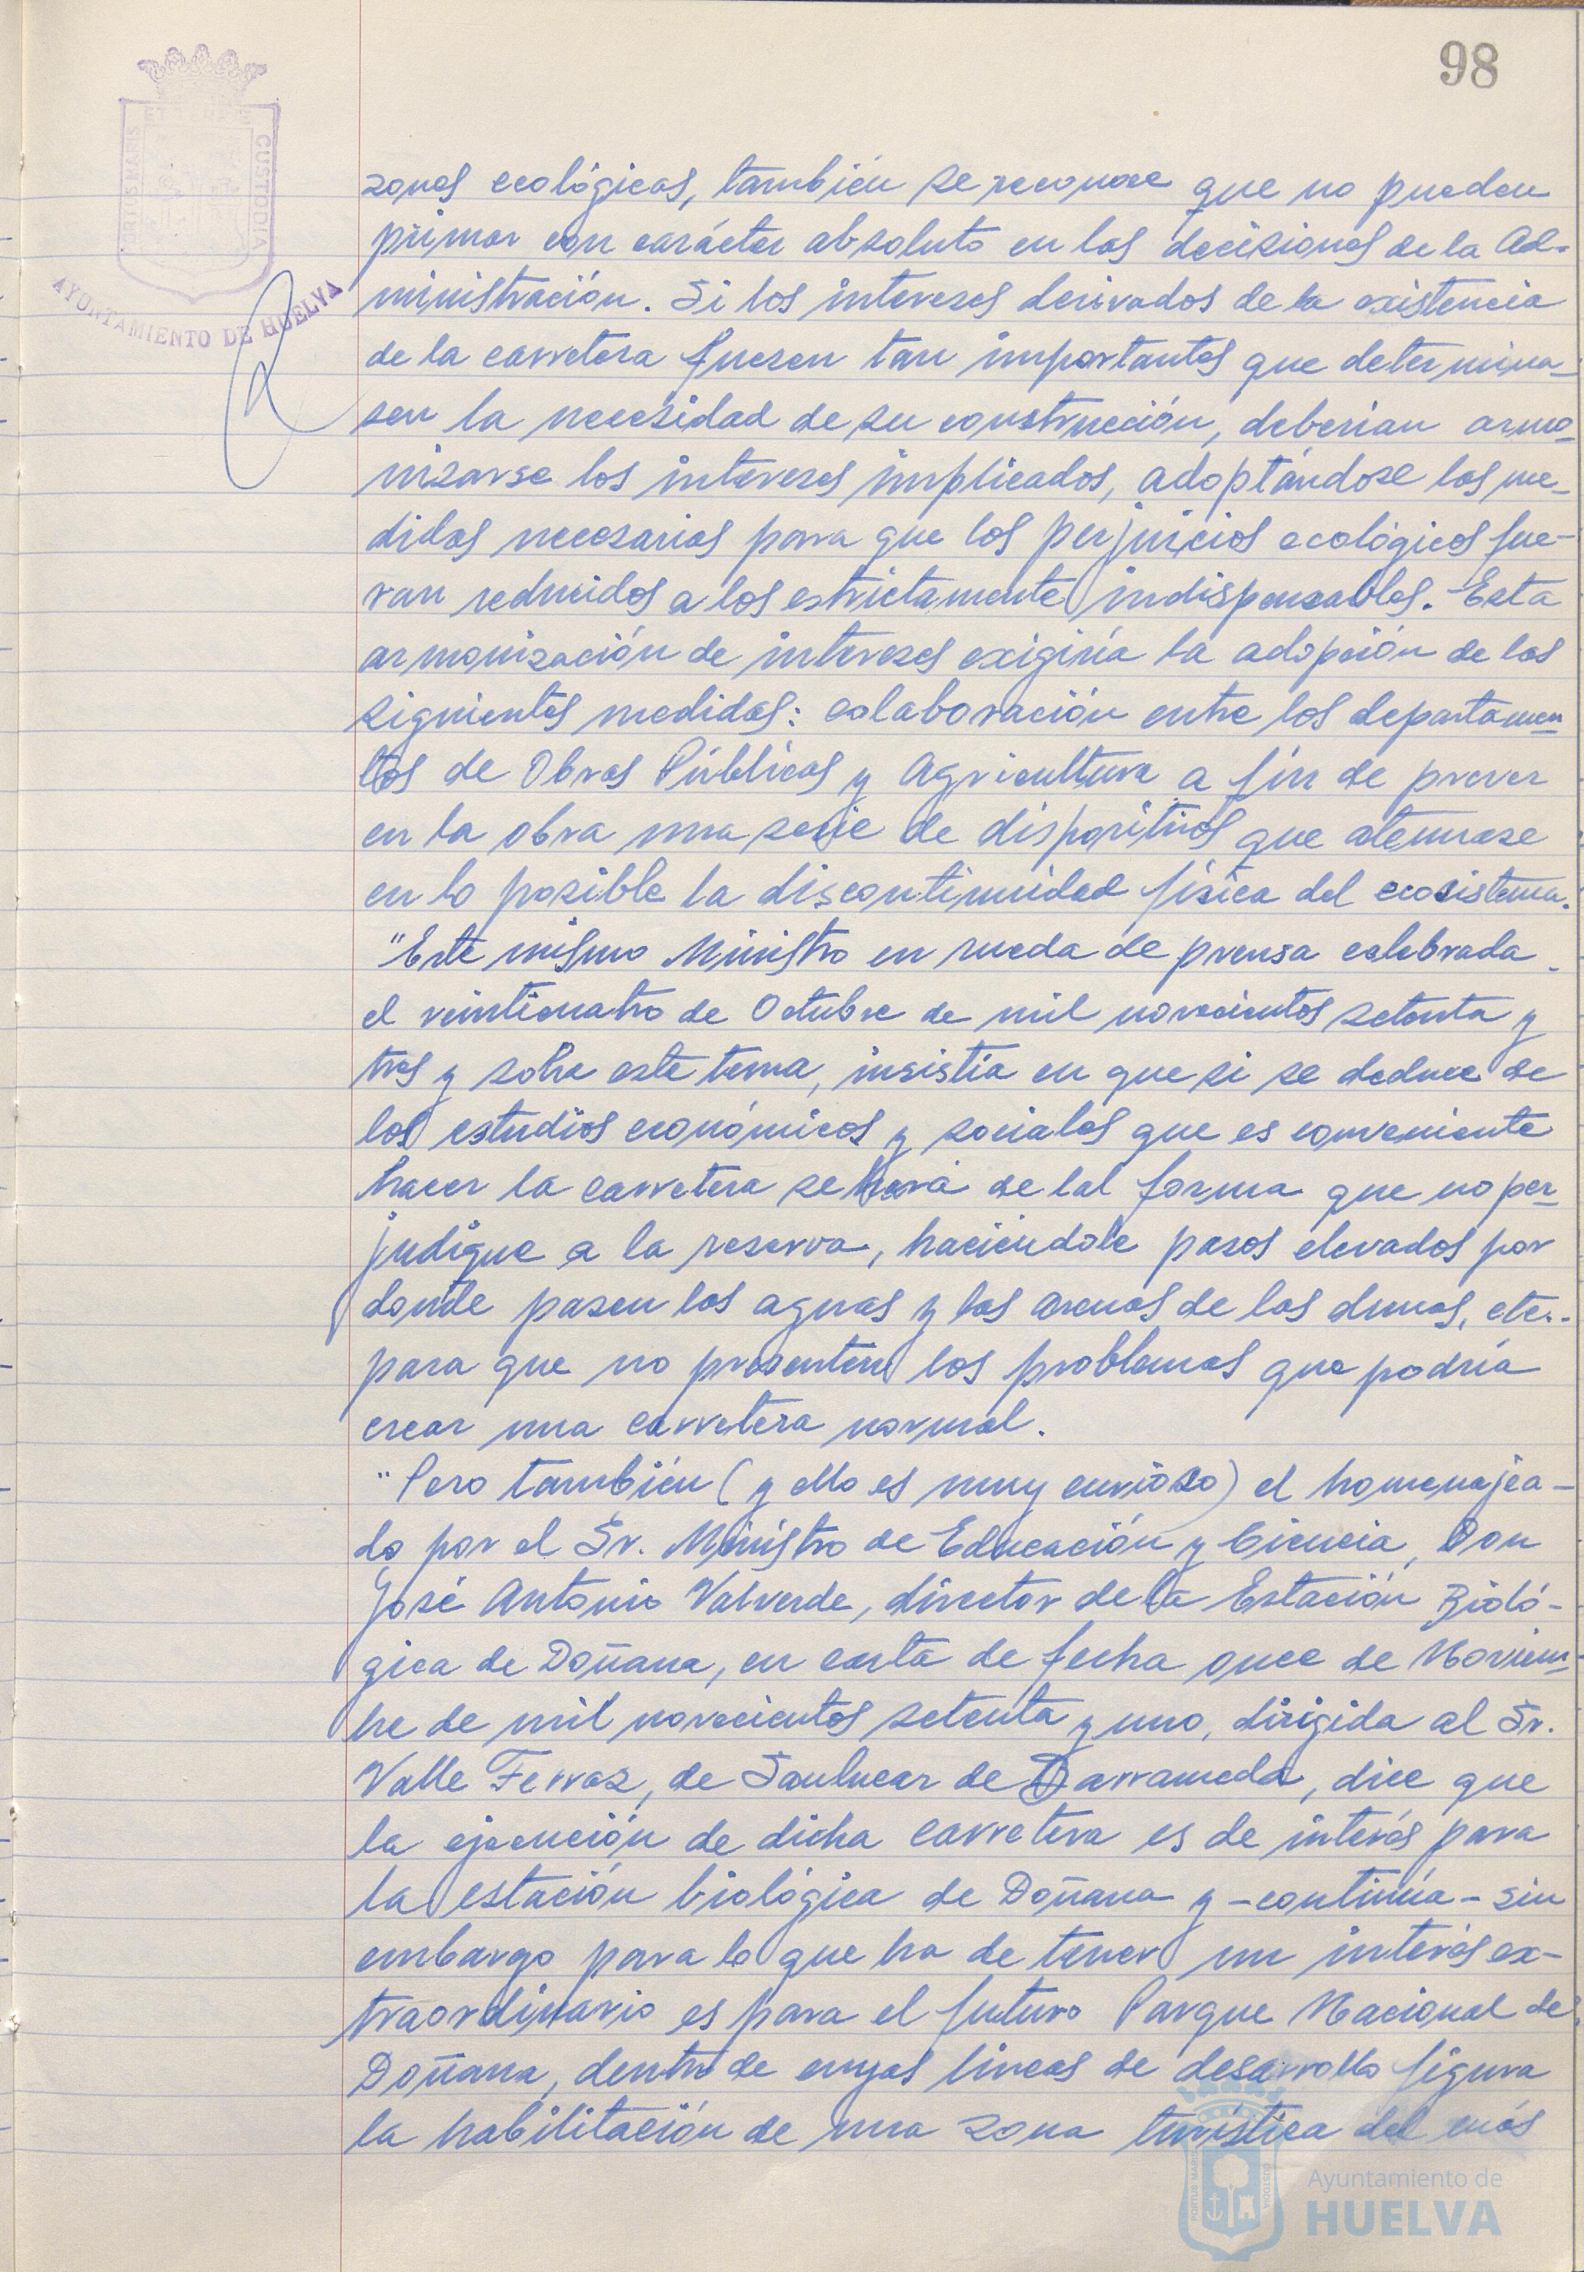 98
PORTUS MARIS ET TERRE CUSTODIA
AYUNTAMIENTO DE HUELVA
zonas ecológicas, también se reconoce que no pueden
primar con carácter absoluto en las decisiones de la Ad-
ministración. Si los intereses derivados de la existencia
de la carretera fuesen tan importantes que determina-
sen la necesidad de su construcción, deberían armo-
nizarse los intereses implicados, adoptándose las me-
didas necesarias para que los perjuicios ecológicos fue-
ran reducidos a los estrictamente indispensables. Esta
armonización de intereses exigiría la adopción de las
siguientes medidas: colaboración entre los departamen-
tos de Obras Públicas y Agricultura a fin de prever
en la obra una serie de dispositivos que atenuase
en lo posible la discontinuidad física del ecosistema.
"Este mismo Ministro en rueda de prensa celebrada
el veinticuatro de Octubre de mil novecientos setenta y
tres y sobre este tema, insistía en que si se deduce de
los estudios económicos y sociales que es conveniente
hacer la carretera se hará de tal forma que no per-
judique a la reserva, haciéndole pasos elevados por
donde pasen las aguas y las arenas de las dunas, etc..
para que no presenten los problemas que podría
crear una carretera normal.
"Pero también (y ello es muy curioso) el homenajea-
do por el Sr. Ministro de Educación y Ciencia, Don
José Antonio Valverde, director de la Estación Bioló-
gica de Doñana, en carta de fecha once de Noviem-
bre de mil novecientos setenta y uno, dirigida al Sr.
Valle Ferraz, de Sanlucar de Barrameda, dice que
la ejecución de dicha carretera es de interés para
la estación biológica de Doñana y -continúa- sin
embargo para lo que ha de tener un interés ex-
traordinario es para el futuro Parque Nacional de
Doñana, dentro de cuyas líneas de desarrollo figura
la habilitación de una zona turística del más
PORTUS MARIS CUSTODIA
Ayuntamiento de
HUELVA